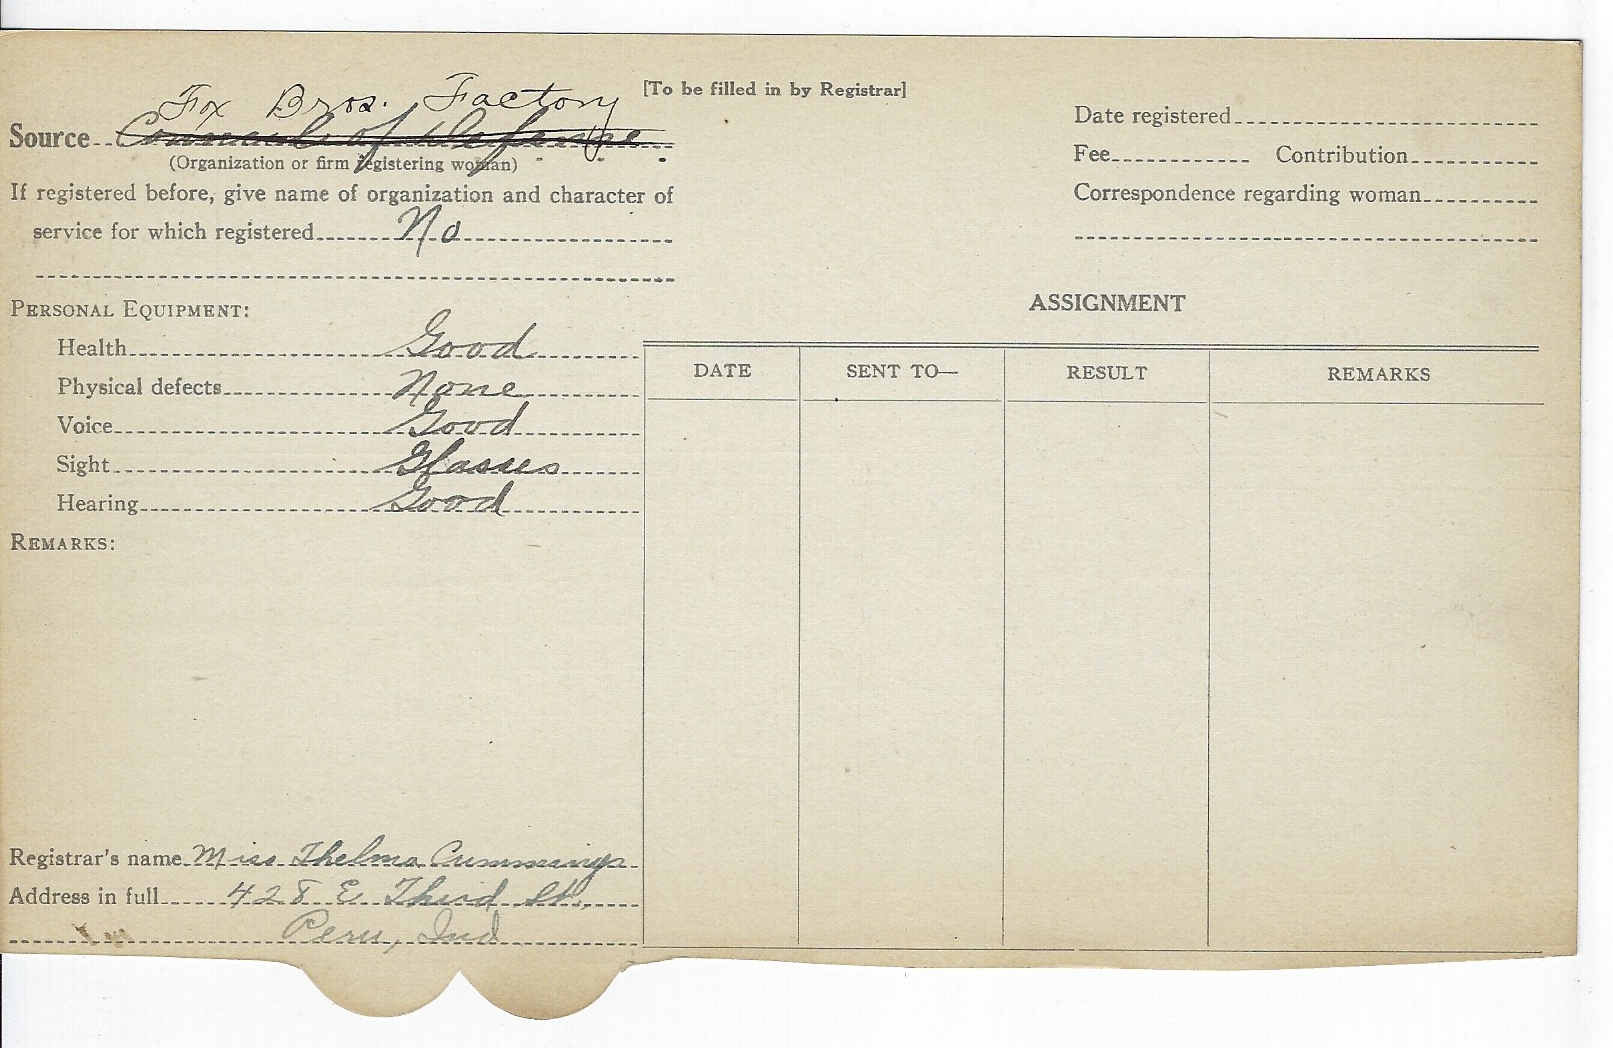 [To be filled in by Registrar]
Fox Bros. Factory
Source Council of Defense
(Organization or firm registering woman)
If registered before, give name of organization and character of
service for which registered No
PERSONAL EQUIPMENT:
Health Good
Physical defects None
Voice Good
Sight Glasses
Hearing Good
REMARKS:
Registrar's name Miss Thelma Cummings
Address in full 428 E Third St.
Peru, Ind
Date registered
Fee Contribution
Correspondence regarding woman
ASSIGNMENT
DATE SENT TO— RESULT REMARKS